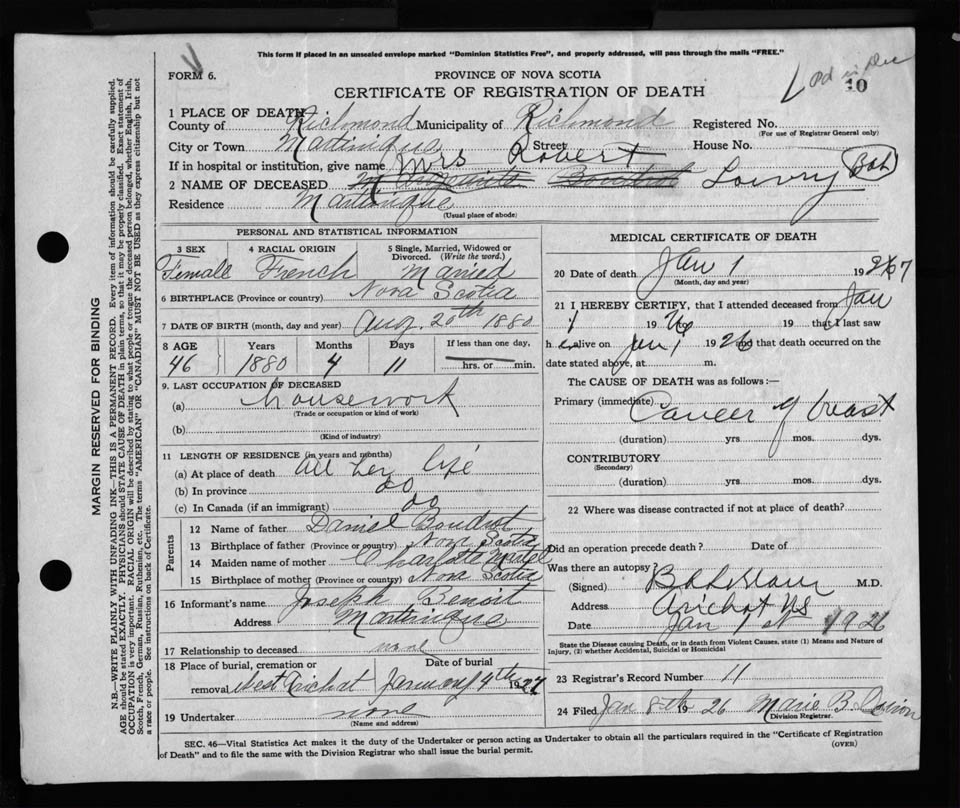 This form if placed in an unsealed envelope marked "Dominion Statistics Free", and properly addressed, will pass through the mails "FREE."
FORM 6.
PROVINCE OF NOVA SCOTIA
CERTIFICATE OF REGISTRATION OF DEATH
10
1 PLACE OF DEATH
County of Richmond Municipality of Richmond Registered No.
(For use of Registrar General only)
City or Town Martinique Street House No.
If in hospital or institution, give name Mrs Robert
2 NAME OF DECEASED Boudrot Lowry (Bob)
Residence Martinique
(Usual place of abode)
PERSONAL AND STATISTICAL INFORMATION
3 SEX 4 RACIAL ORIGIN 5 Single, Married, Widowed or Divorced. (Write the word.)
Female French Married
6 BIRTHPLACE (Province or country) Nova Scotia
7 DATE OF BIRTH (month, day and year) Aug 20th 1880
8 AGE Years Months Days If less than one day,
46 1880 4 11 hrs. or min.
9. LAST OCCUPATION OF DECEASED
(a) housework
(Trade or occupation or kind of work)
(b)
(Kind of industry)
11 LENGTH OF RESIDENCE (in years and months)
(a) At place of death all her life
(b) In province do
(c) In Canada (if an immigrant) do
Parents
12 Name of father Daniel Boudrot
13 Birthplace of father (Province or country) Nova Scotia
14 Maiden name of mother Charlotte
15 Birthplace of mother (Province or country) Nova Scotia
16 Informant's name Joseph Benoit
Address Martinique
17 Relationship to deceased none
18 Place of burial, cremation or removal West Arichat
Date of burial January 4th 1927
19 Undertaker none
(Name and address)
MEDICAL CERTIFICATE OF DEATH
20 Date of death Jan 1 19
(Month, day and year)
21 I HEREBY CERTIFY, that I attended deceased from Jan
1 1926 19 that I last saw
h alive on Jan 1 1926 and that death occurred on the
date stated above, at m.
The CAUSE OF DEATH was as follows:—
Primary (immediate) Cancer of breast
(duration) yrs. mos. dys.
CONTRIBUTORY
(Secondary)
(duration) yrs. mos. dys.
22 Where was disease contracted if not at place of death?
Did an operation precede death? Date of
Was there an autopsy?
(Signed) M.D.
Address Arichat NS
Date Jan 1st 1926
State the Disease causing Death, or in death from Violent Causes, state (1) Means and Nature of Injury, (2) whether Accidental, Suicidal or Homicidal
23 Registrar's Record Number 11
24 Filed Jan 8th 1926 Marie B.
Division Registrar.
(OVER)
SEC. 46—Vital Statistics Act makes it the duty of the Undertaker or person acting as Undertaker to obtain all the particulars required in the "Certificate of Registration of Death" and to file the same with the Division Registrar who shall issue the burial permit.
MARGIN RESERVED FOR BINDING
N.B.—WRITE PLAINLY WITH UNFADING INK—THIS IS A PERMANENT RECORD. Every item of information should be carefully supplied.
AGE should be stated EXACTLY. PHYSICIANS should STATE CAUSE OF DEATH in plain terms, so that it may be properly classified. Exact statement of
OCCUPATION is very important. RACIAL ORIGIN will be described by stating to what people or tongue the deceased person belonged, whether English, Irish,
Scotch, French, German, Russian, Ruthenian, etc. The terms "AMERICAN" or "CANADIAN" MUST NOT BE USED as they express citizenship but not
a race or people. See instructions on back of Certificate.